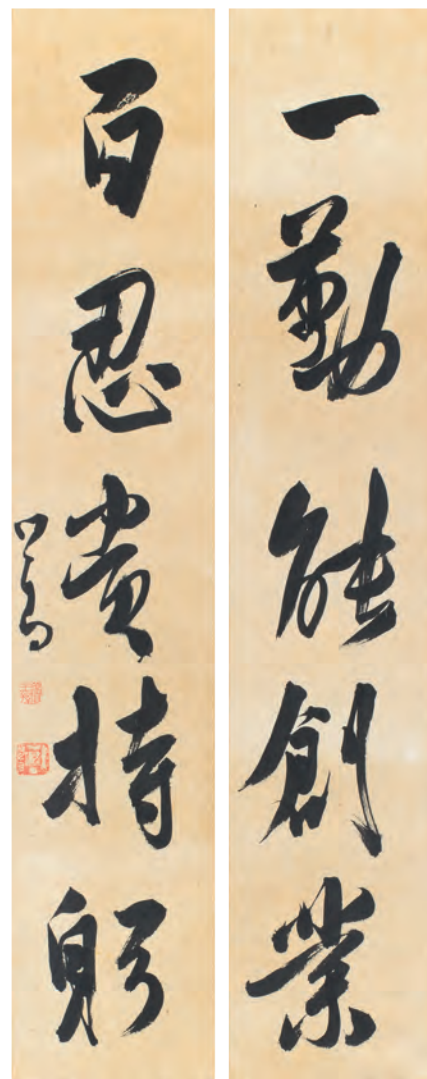 一勤能創業
百忍貴持躬